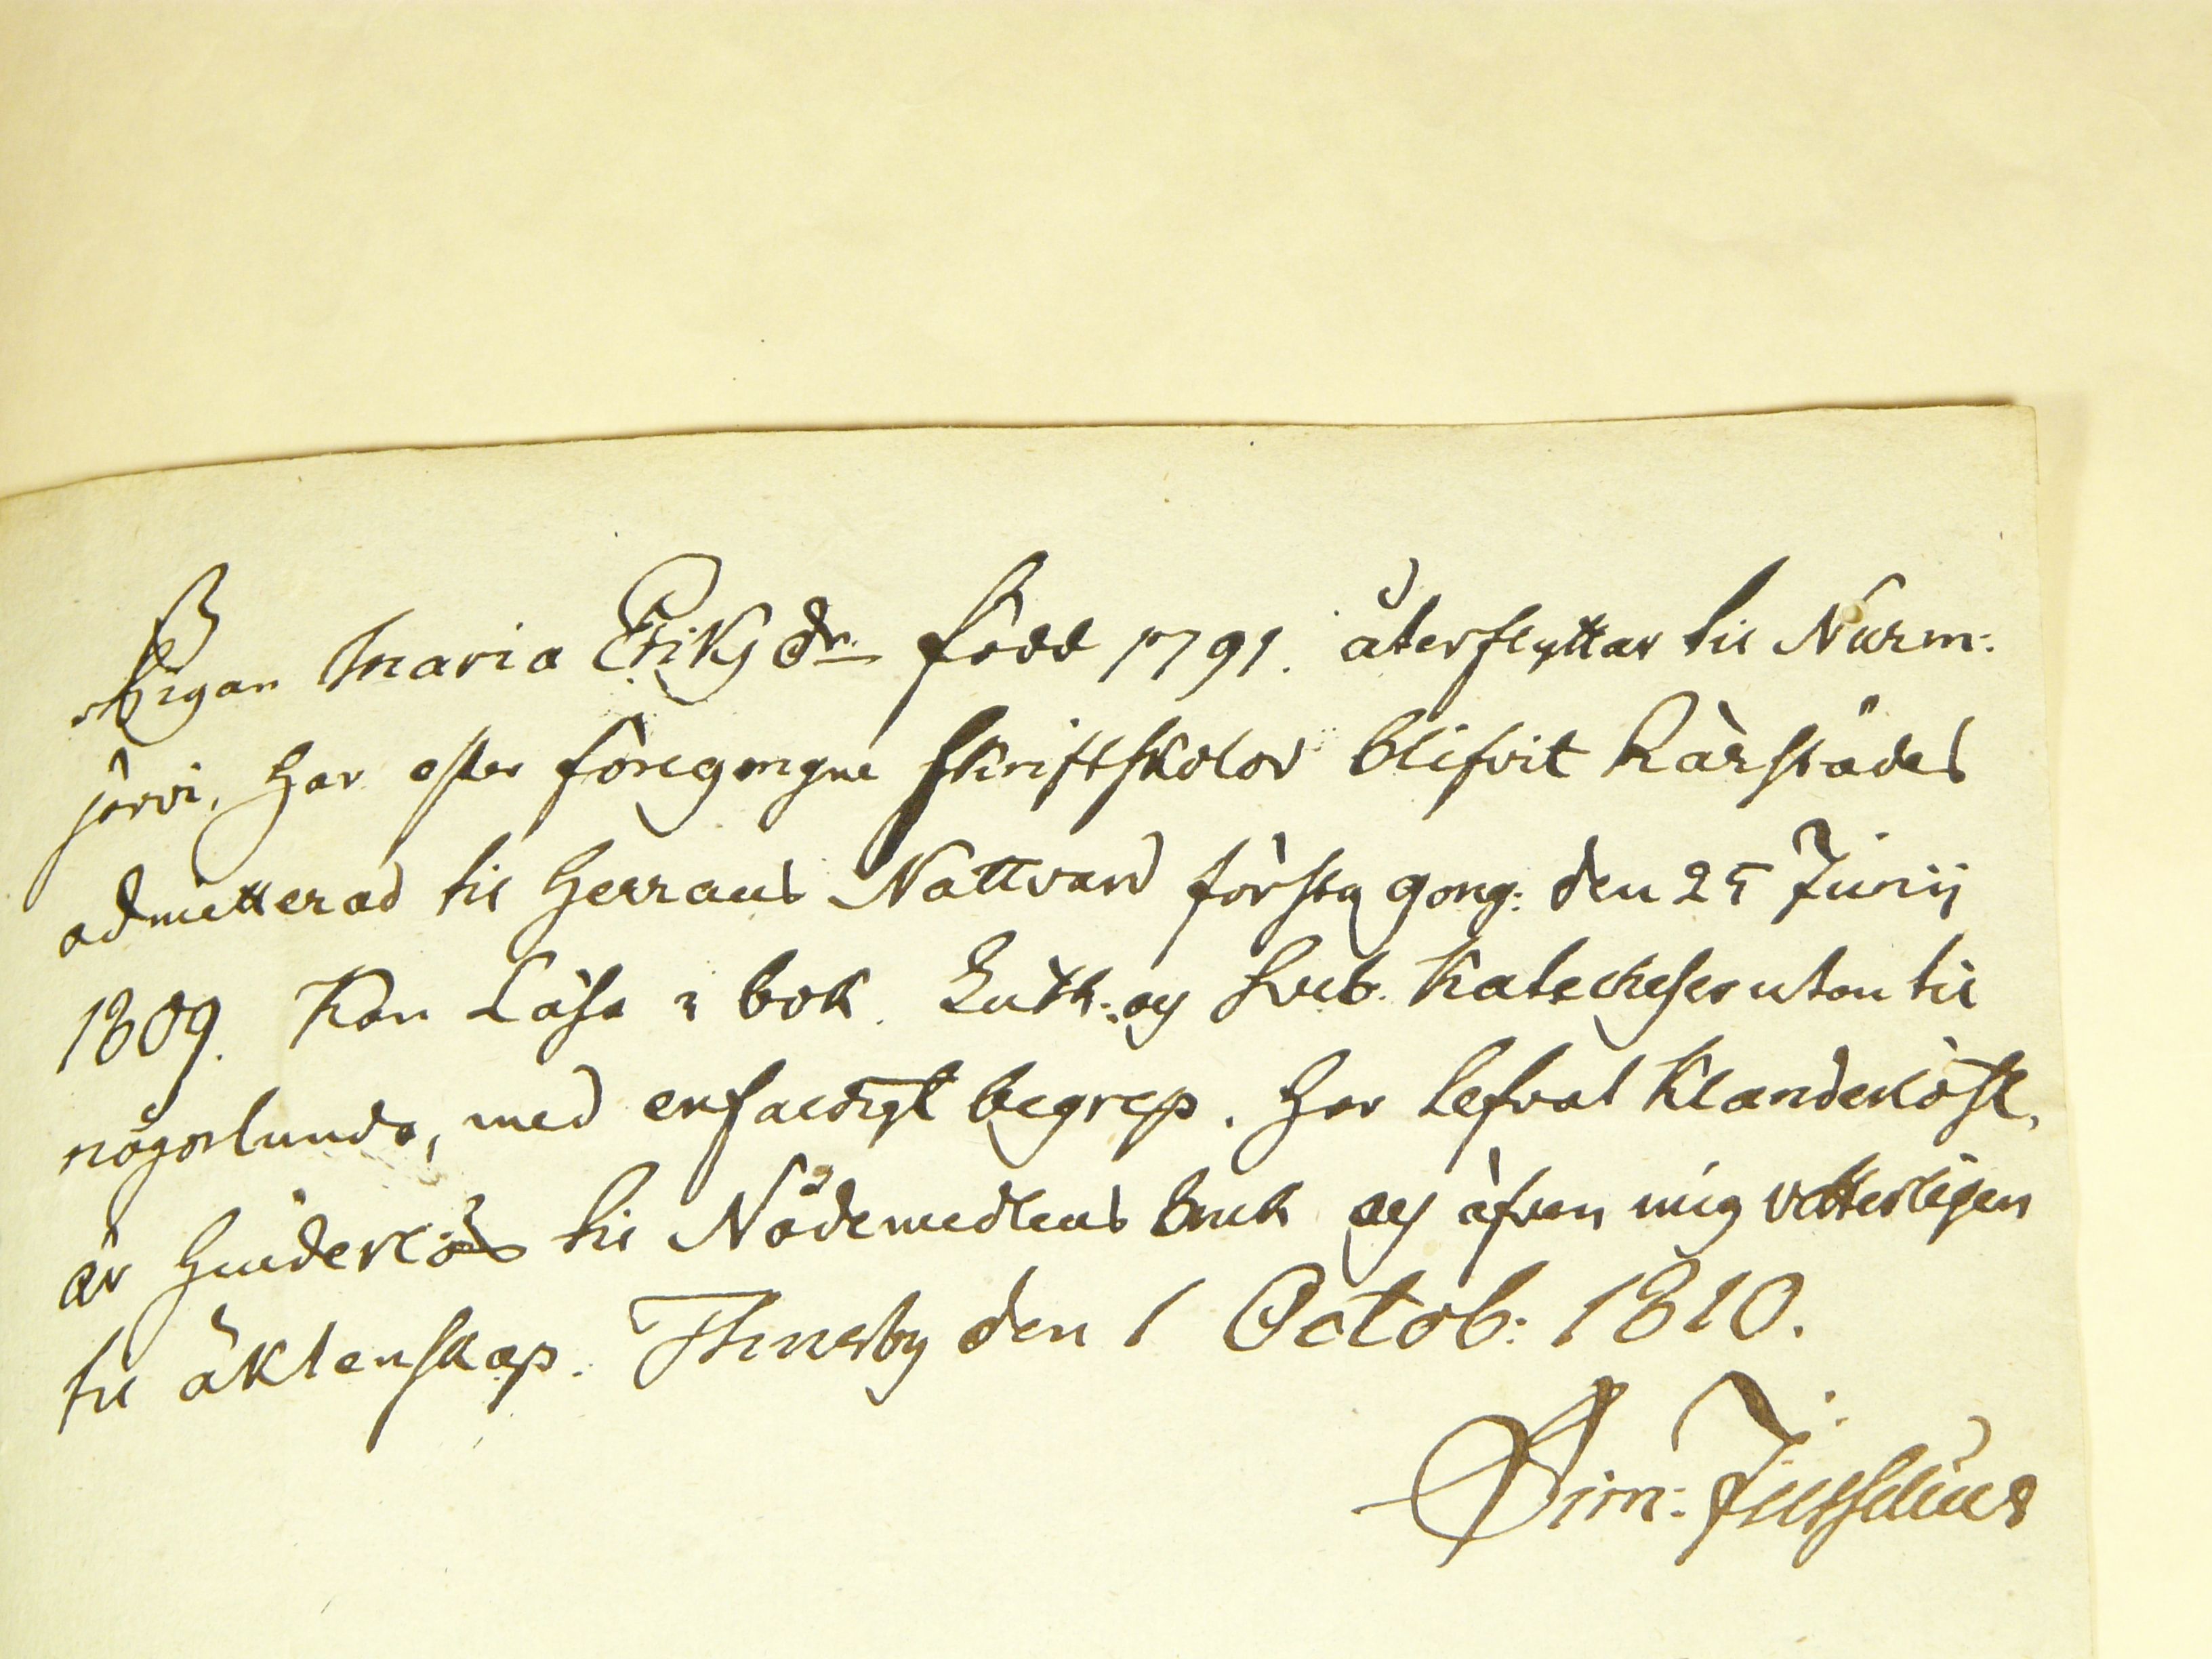 Pigan Maria Eriksdr. född 1791. återflyttar til Nurm-
järvi, har efter föregångne skriftskolor blifvit härstädes
admitterad til Herrans Nattvard första gång: den 25 Junij
1809. Kan läsa i bok. Luth: og Sveb. Katecheser utan til
någorlunda, med enfaldigt begrep. Har lefvat klanderlöst,
är hinderlös til Nådemedlens bruk og äfven mig vetterligen
til äktenskap. Thusby den 1 Octob: 1810.
Sim: